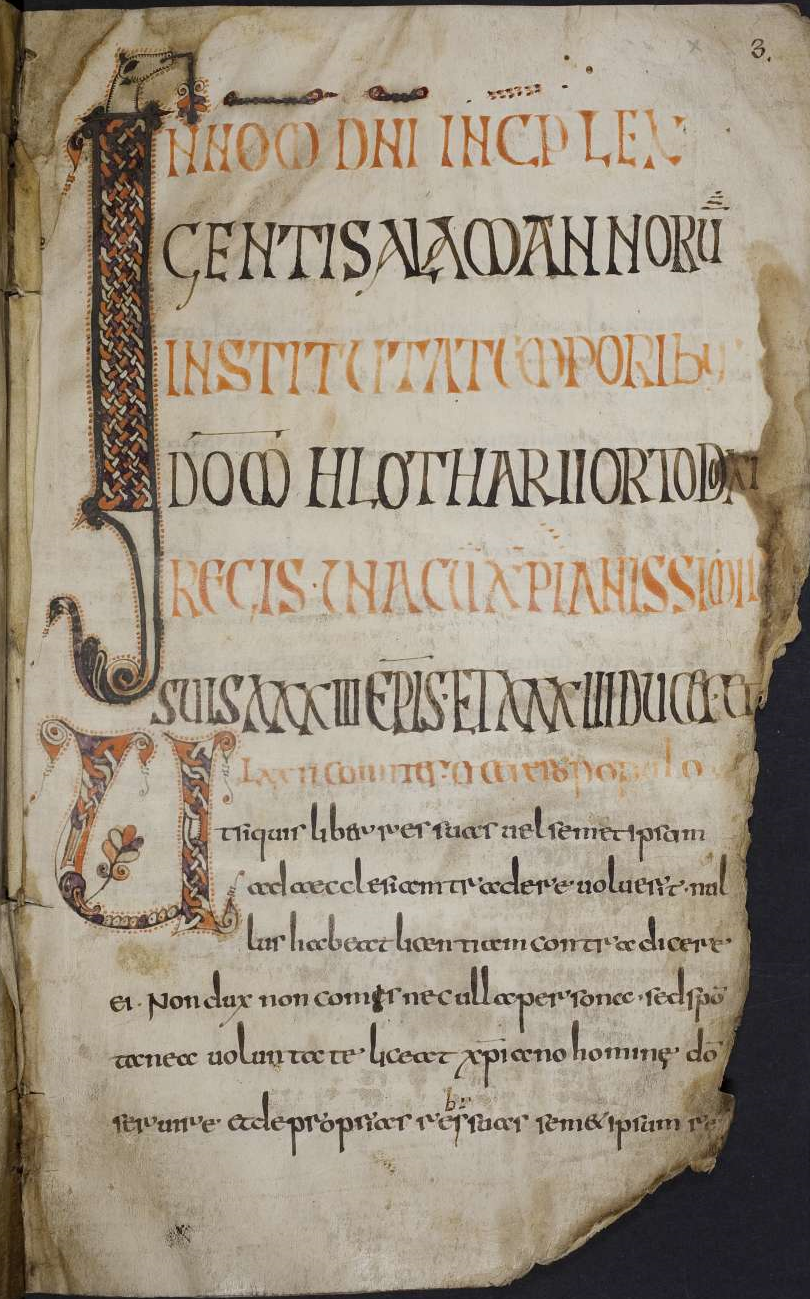 3.
INNOM DNI INCP LEX
GENTIS ALAMANNORŪ
INSTITUTA TEMPORIBUS
DOM̄ HLOTHARII ORTODOXI
REGIS · UNA CŪ XP̄IANISSIMIS
SUIS XXXIII EPIS · ET XXXIIII DUCIB · ET
LXXII comiter · a cetero populo
Ut si quis liber res suas vel semetipsam
ad aecclesiam tradere · voluerit · nul
lus habeat licentiam contradicere
ei · Non dux non comis nec ulla persona · sed spō
tanea voluntate · liceat xp̄iano homine dō
servire et de proprias res suas semetipsum re